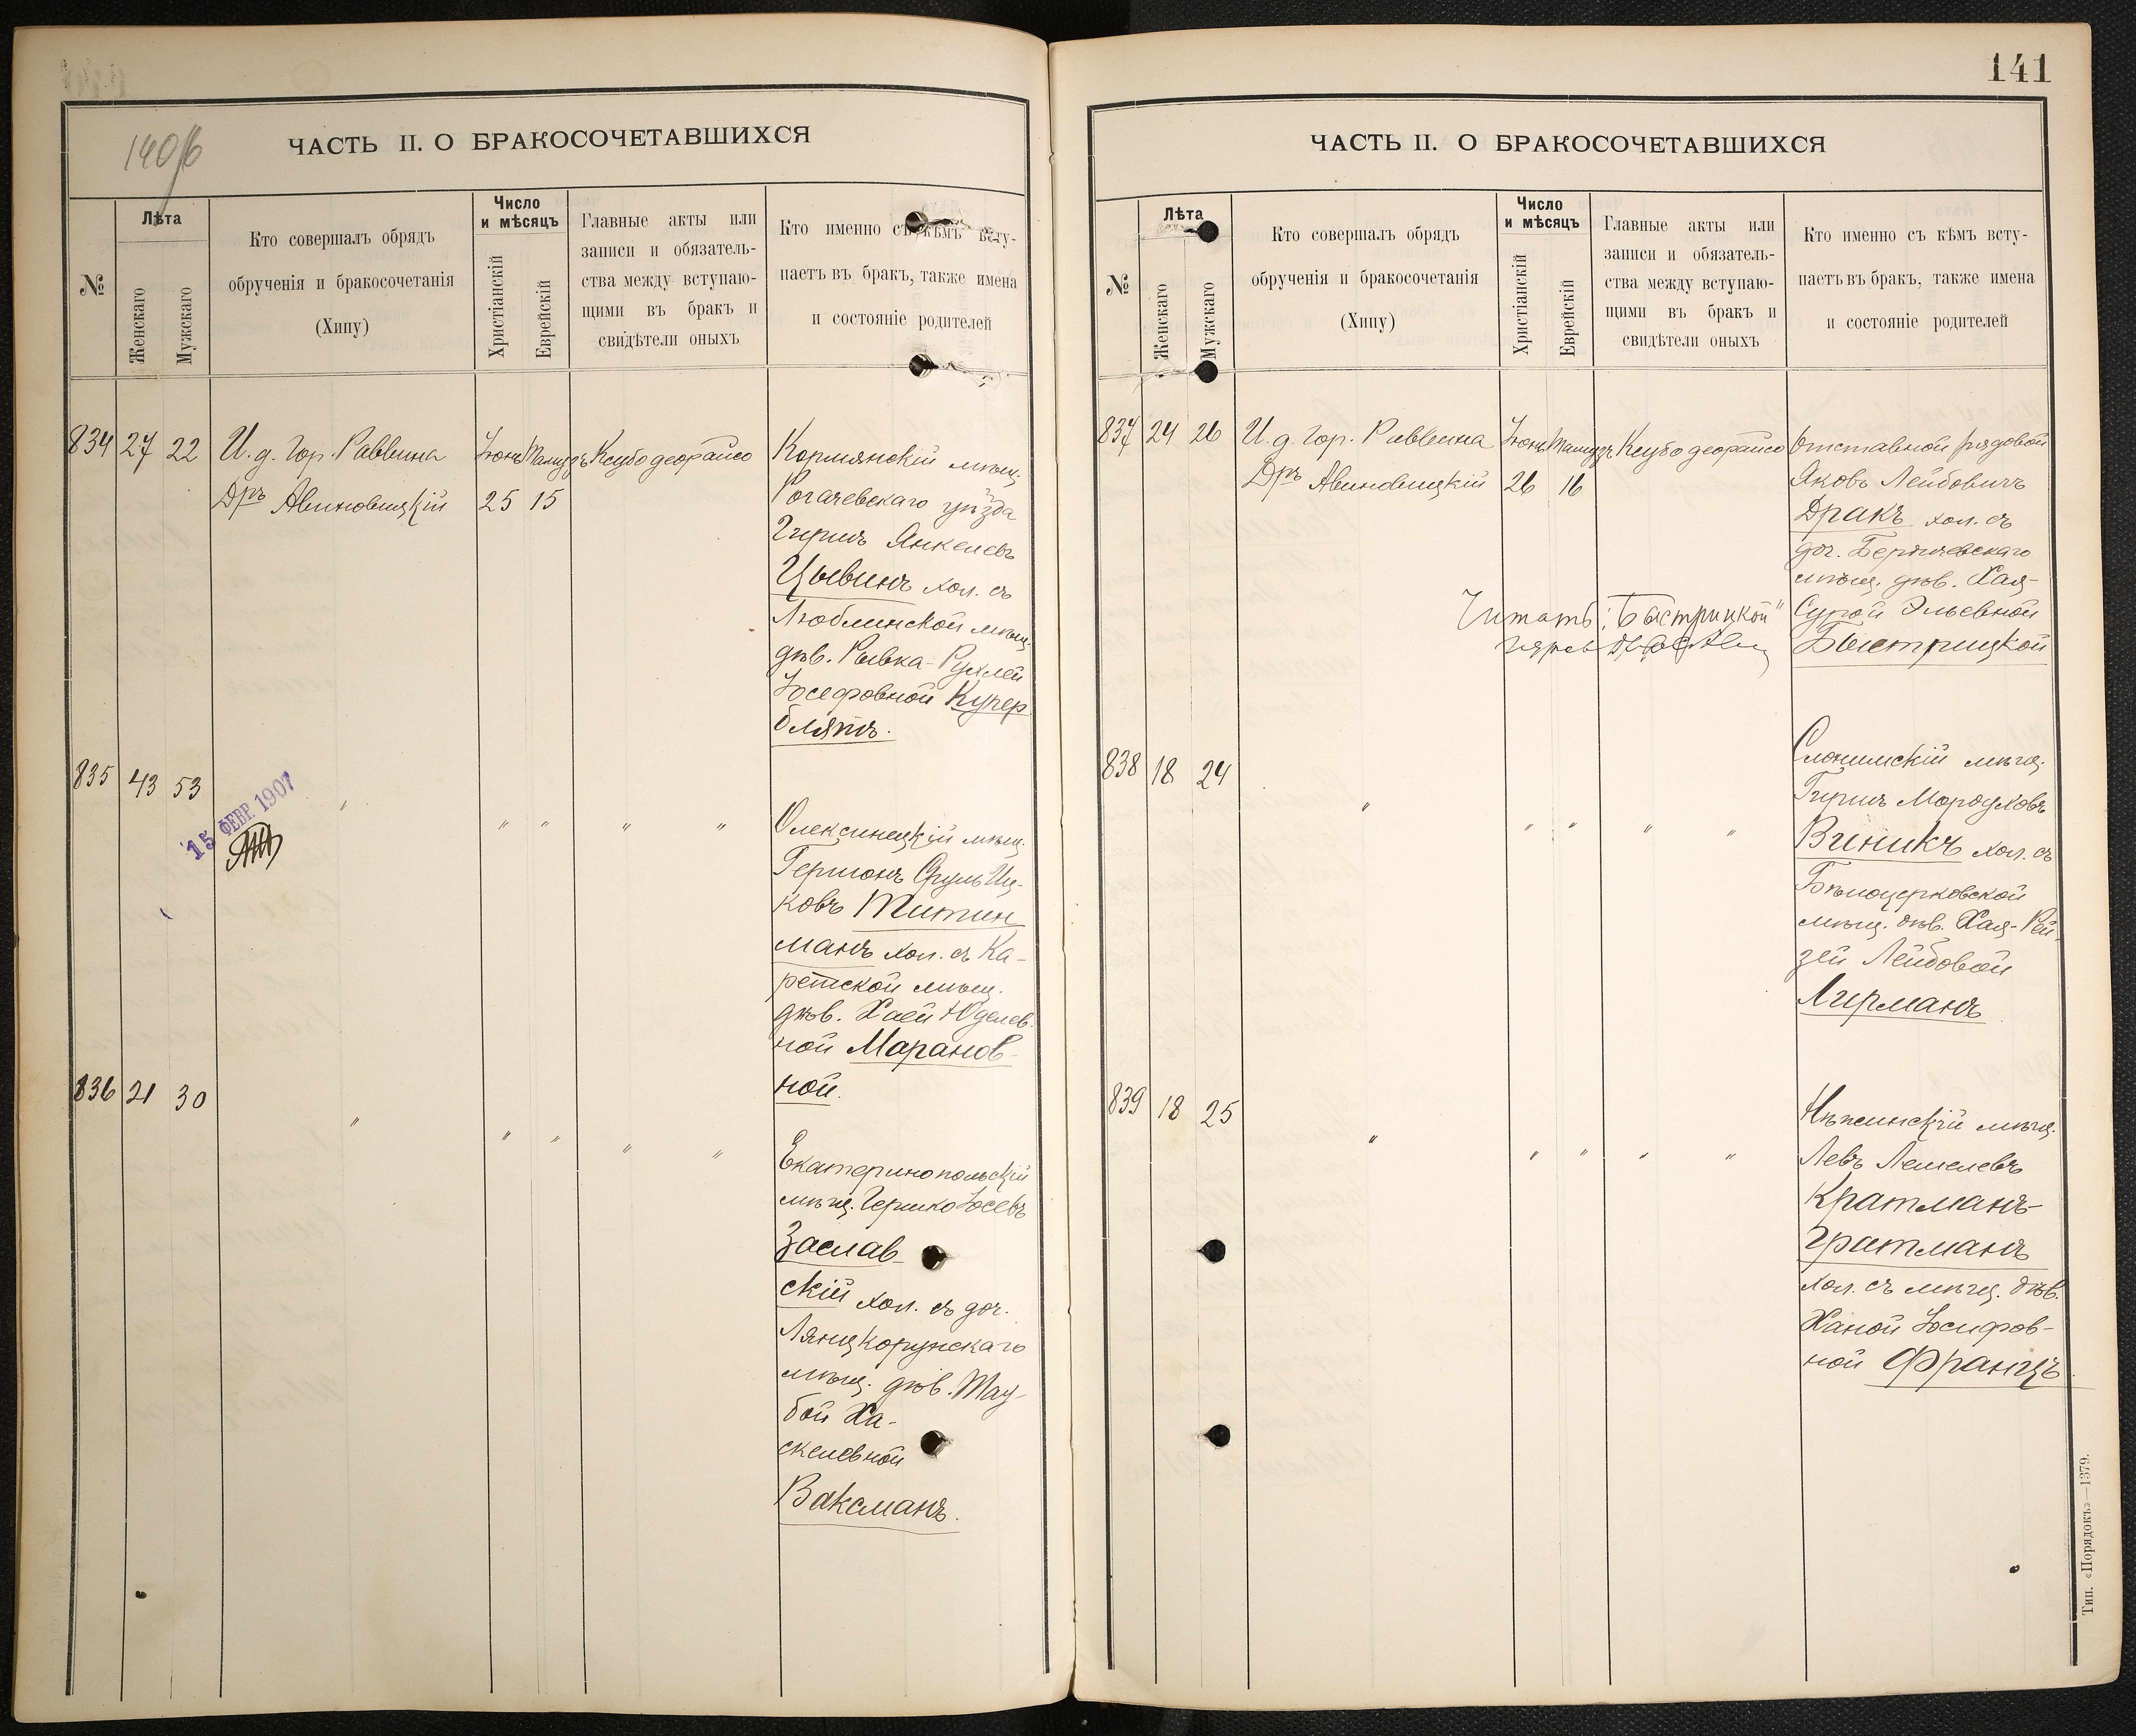 140/б
ЧАСТЬ II. О БРАКОСОЧЕТАВШИХСЯ
№
Лѣта
Женскаго
Мужскаго
Кто совершалъ обрядъ
обрученія и бракосочетанія
(Хипу)
Число
и мѣсяцъ
Христіанскій
Еврейскій
Главные акты или
записи и обязатель-
ства между вступаю-
щими въ бракъ и
свидѣтели оныхъ
Кто именно съ кѣмъ всту-
паетъ въ бракъ, также имена
и состояніе родителей
834 27 22 И. д. Гор. Раввина Іюнь Тамузъ Ксубо деорайсо
Дръ Авиновицкій 25 15
Кормянскій мѣщ.
Рогачевскаго уѣзда
Гиршъ Янкелевъ
Цывинъ хол. съ
Люблинской мѣщ.
дѣв. Рывка-Рухлей
Іосефовной Купер
блятъ.
835 43 53 " " " " "
15 ФЕВР. 1907
Олексинецкій мѣщ.
Гершонъ Сруль Иц-
ковъ Титин
манъ хол. съ Ка-
ретской мѣщ.
дѣв. Хаей Юделев-
ной Маранов-
ной.
836 21 30 " " " " "
Екатеринопольскій
мѣщ. Гершко Іосевъ
Заслав-
скій хол. съ доч.
Лянцкорунскаго
мѣщ. дѣв. Тау-
бой Ха-
скелевной
Ваксманъ.
141
ЧАСТЬ II. О БРАКОСОЧЕТАВШИХСЯ
№
Лѣта
Женскаго
Мужскаго
Кто совершалъ обрядъ
обрученія и бракосочетанія
(Хипу)
Число
и мѣсяцъ
Христіанскій
Еврейскій
Главные акты или
записи и обязатель-
ства между вступаю-
щими въ бракъ и
свидѣтели оныхъ
Кто именно съ кѣмъ всту-
паетъ въ бракъ, также имена
и состояніе родителей
837 24 26 И. д. Гор. Раввина Іюнь Тамузъ Ксубо деорайсо
Дръ Авиновицкій 26 16
Отставной рядовой
Яковъ Лейбовичъ
Дракъ хол. съ
доч. Бердичевскаго
мѣщ. дѣв. Хая-
Сурой Эльевной
Быстрицкой
Читать: "Быстрицкой"
838 18 24 " " " " "
Слонимскій мѣщ.
Гиршъ Мордуховъ
Виникъ хол. съ
Бѣлоцерковской
мѣщ. дѣв. Хая-Рей-
зей Лейбовой
Лирманъ
839 18 25 " " " " "
Нѣжинскій мѣщ.
Левъ Лемелевъ
Кратманъ-
Гратманъ
хол. съ мѣщ. дѣв.
Ханой Іосифов-
ной Францъ.
Тип. «Порядокъ»—1379.